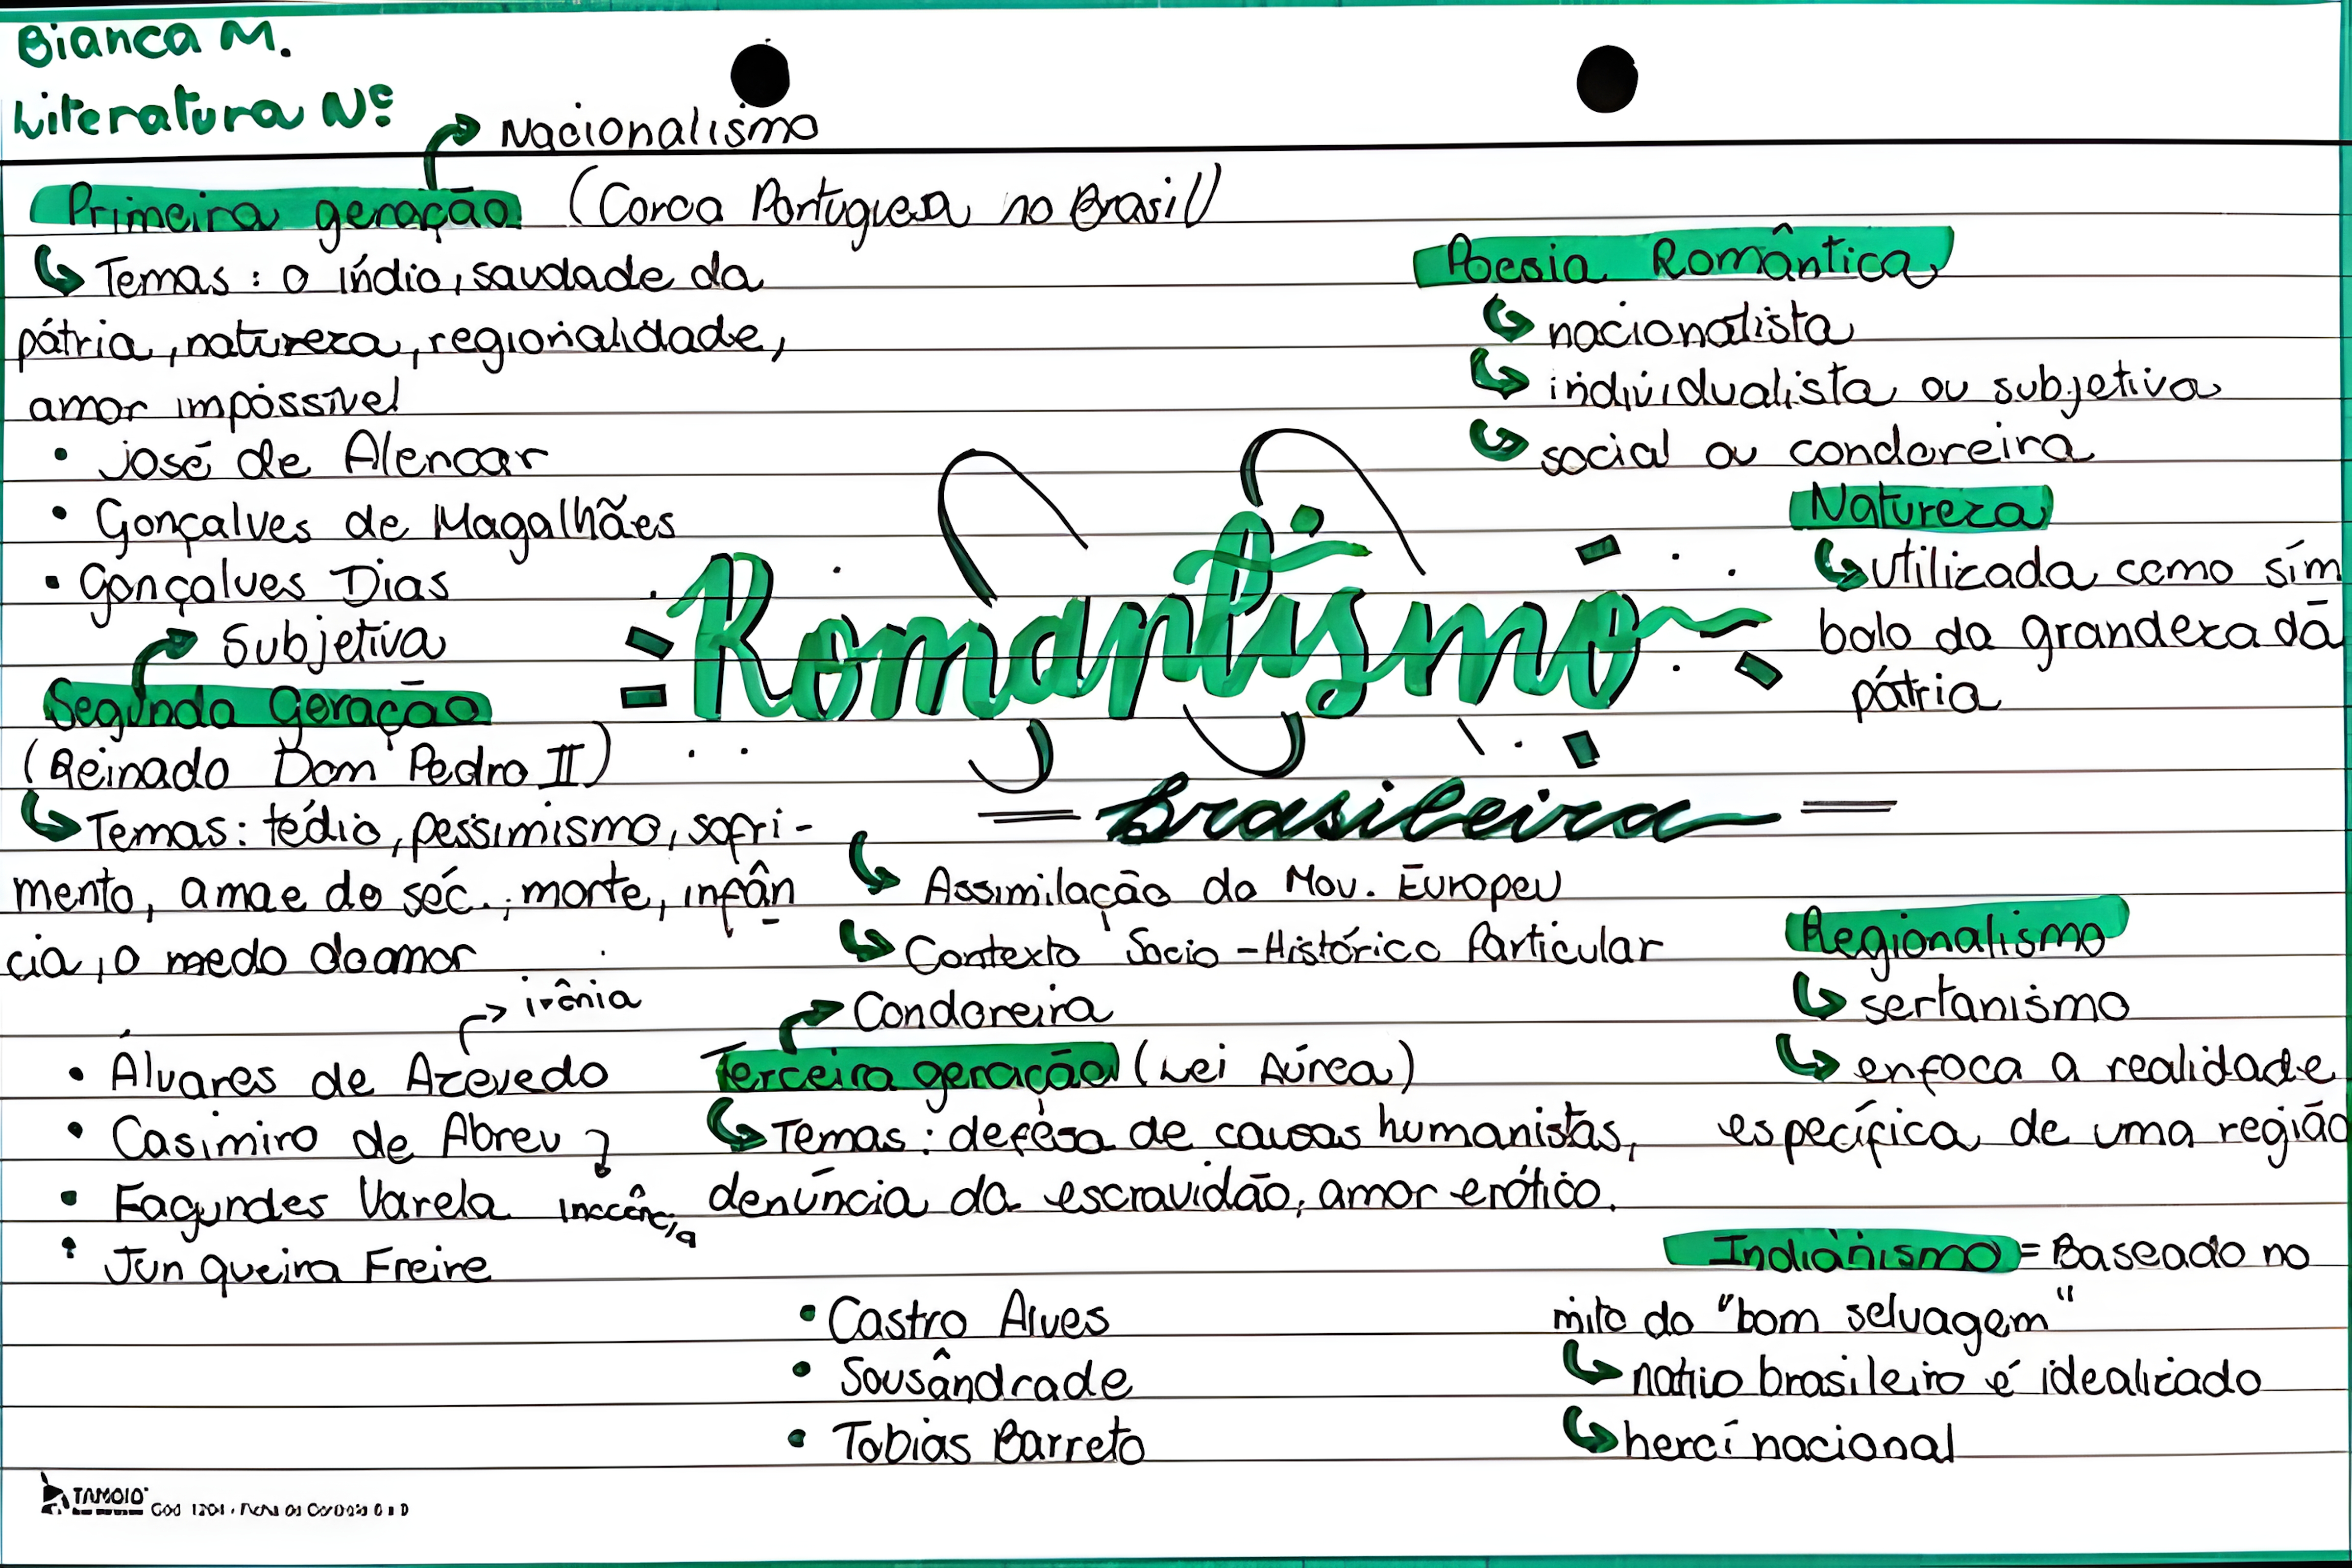 Bianca M.
Literatura Nº
Nacionalismo
Primeira geração (Coroa Portuguesa no Brasil)
Temas: o índio, saudade da
pátria, natureza, regionalidade,
amor impossível
• José de Alencar
• Gonçalves de Magalhães
• Gonçalves Dias
Subjetiva
Segunda Geração
(Reinado Dom Pedro II)
Temas: tédio, pessimismo, sofri-
mento, a mae do séc., morte, infân
cia, o medo do amor
irônia
• Álvares de Azevedo
• Casimiro de Abreu
• Fagundes Varela
inocência
• Junqueira Freire
Romantismo
= brasileira =
Assimilação do Mov. Europeu
Contexto Socio-Histórico Particular
Condoreira
Terceira geração (Lei Aúrea)
Temas: defesa de causas humanistas,
denúncia da escravidão, amor erótico.
• Castro Alves
• Sousândrade
• Tobias Barreto
Poesia Romântica
nacionalista
individualista ou subjetiva
social ou condoreira
Natureza
utilizada como sím
bolo da grandeza da
pátria
Regionalismo
sertanismo
enfoca a realidade
específica de uma região
Indianismo = Baseado no
mito do "bom selvagem"
nativo brasileiro é idealizado
herói nacional
TAMOIO